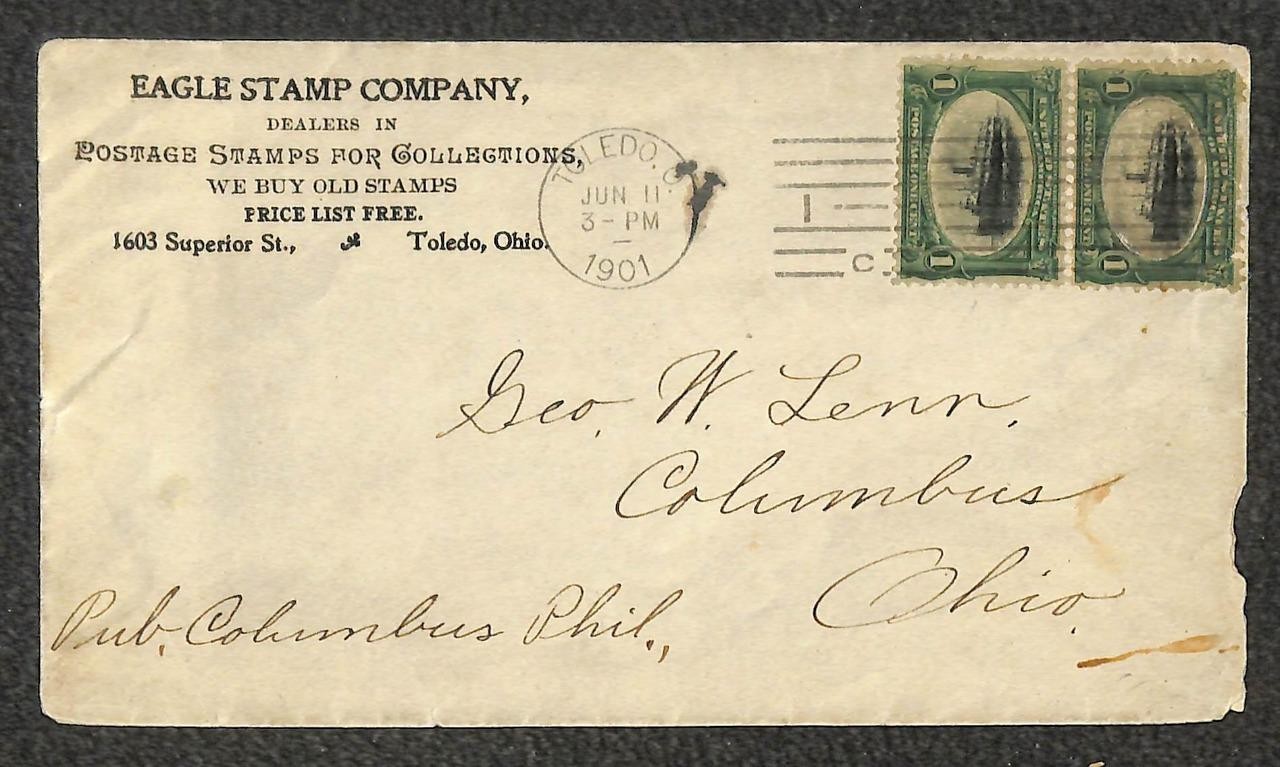 EAGLE STAMP COMPANY,
DEALERS IN
POSTAGE STAMPS FOR COLLECTIONS,
WE BUY OLD STAMPS
PRICE LIST FREE.
1603 Superior St., Toledo, Ohio.
TOLEDO, O.
JUN 11
3 - PM
1901
1
C
1 1
1 1
Geo. W. Lenn,
Columbus
Ohio.
Pub. Columbus Phil.,